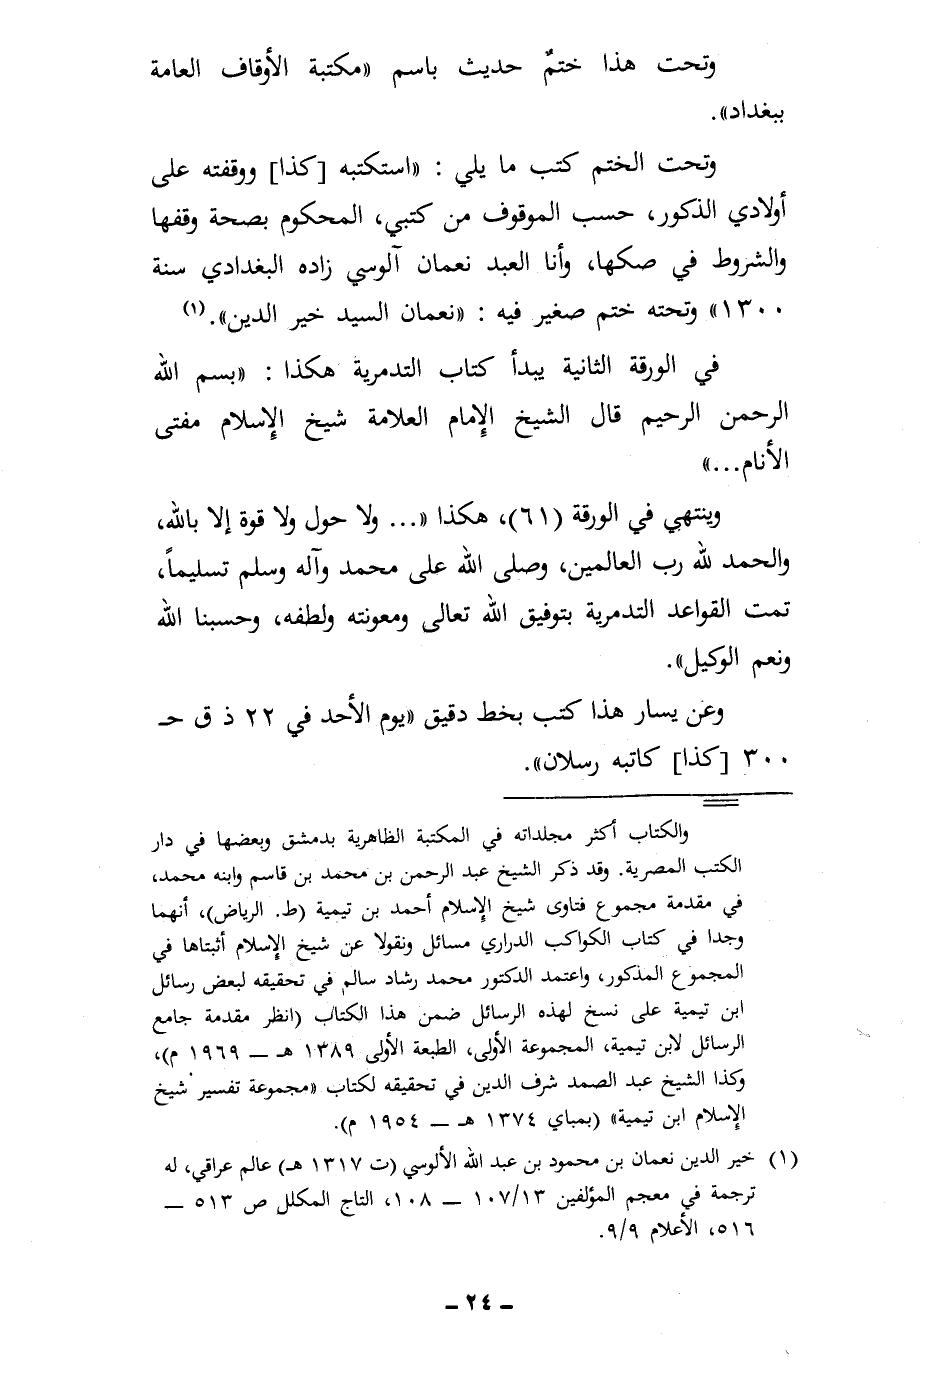 وتحت هذا ختمٌ حديث باسم «مكتبة الأوقاف العامة
ببغداد».
وتحت الختم كتب ما يلي : «استكتبه [كذا] ووقفته على
أولادي الذكور، حسب الموقوف من كتبي، المحكوم بصحة وقفها
والشروط في صكها، وأنا العبد نعمان آلوسي زاده البغدادي سنة
١٣٠٠» وتحته ختم صغير فيه : «نعمان السيد خير الدين».(١)
في الورقة الثانية يبدأ كتاب التدمرية هكذا : «بسم الله
الرحمن الرحيم قال الشيخ الإمام العلامة شيخ الإسلام مفتى
الأنام...»
وينتهي في الورقة (٦١)، هكذا «... ولا حول ولا قوة إلا بالله،
والحمد لله رب العالمين، وصلى الله على محمد وآله وسلم تسليماً،
تمت القواعد التدمرية بتوفيق الله تعالى ومعونته ولطفه، وحسبنا الله
ونعم الوكيل».
وعن يسار هذا كتب بخط دقيق «يوم الأحد في ٢٢ ذ ق حـ
٣٠٠ [كذا] كاتبه رسلان».
والكتاب أكثر مجلداته في المكتبة الظاهرية بدمشق وبعضها في دار
الكتب المصرية. وقد ذكر الشيخ عبد الرحمن بن محمد بن قاسم وابنه محمد،
في مقدمة مجموع فتاوى شيخ الإسلام أحمد بن تيمية (ط. الرياض)، أنهما
وجدا في كتاب الكواكب الدراري مسائل ونقولا عن شيخ الإسلام أثبتاها في
المجموع المذكور، واعتمد الدكتور محمد رشاد سالم في تحقيقه لبعض رسائل
ابن تيمية على نسخ لهذه الرسائل ضمن هذا الكتاب (انظر مقدمة جامع
الرسائل لابن تيمية، المجموعة الأولى، الطبعة الأولى ١٣٨٩ هـ ــ ١٩٦٩ م)،
وكذا الشيخ عبد الصمد شرف الدين في تحقيقه لكتاب «مجموعة تفسير شيخ
الإسلام ابن تيمية» (بمباي ١٣٧٤ هـ ــ ١٩٥٤ م).
(١) خير الدين نعمان بن محمود بن عبد الله الألوسي (ت ١٣١٧ هـ) عالم عراقي، له
ترجمة في معجم المؤلفين ١٠٧/١٣ ــ ١٠٨، التاج المكلل ص ٥١٣ ــ
٥١٦، الأعلام ٩/٩.
ـ ٢٤ ـ